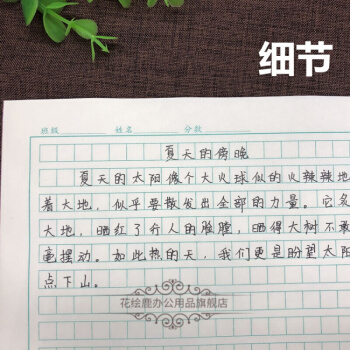 细节
班级 姓名 分数
夏天的傍晚
夏天的太阳像个大火球似的火辣辣地
着大地，似乎要散发出全部的力量。它
大地，晒红了行人的脸膛，晒得大树不敢
竟摆动。如此热的天，我们更是盼望太阳
点下山。
花绘鹿办公用品旗舰店